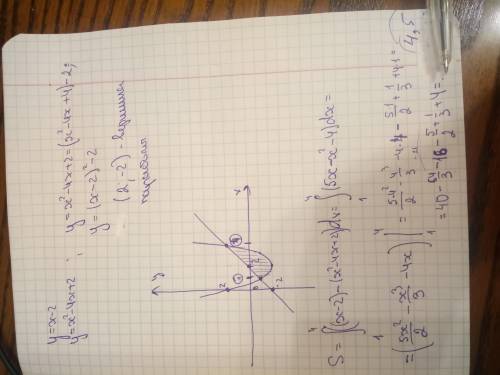 y=x-2
y=x²-4x+2 ; y=x²-4x+2=(x²-4x+4)-2;
y=(x-2)²-2
(2,-2) - вершина
параболы
y
x
2
-2
S=∫₁⁴((x-2)-(x²-4x+2))dx=∫₁⁴(5x-x²-4)dx=
=(5x²/2-x³/3-4x)|₁⁴=5·4²/2-4³/3-4·4-5·1/2+1/3+4·1=
=40-64/3-16-5/2+1/3+4=
4,5